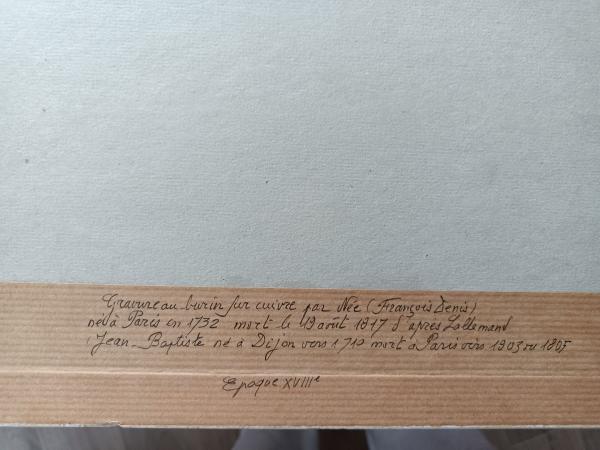 Gravure au burin sur cuivre par Née (François Denis)
né à Paris en 1732 mort le 19 août 1817 d'après Lallemand
(Jean-Baptiste né à Dijon vers 1710 mort à Paris vers 1903 ou 1805
Epoque XVIIIe